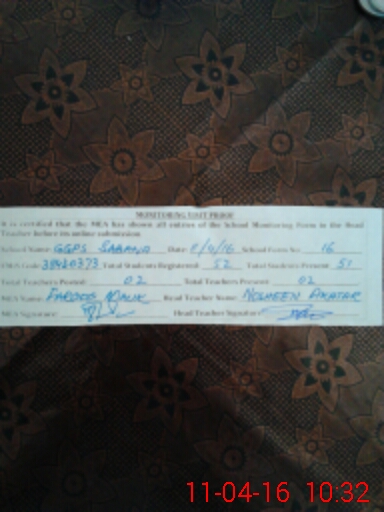 MONITORING VISIT PROOF
It is certified that the MEA has shown all entries of the School Monitoring Form to the Head
Teacher before its online submission
School Name: GGPS Date: 11/4/16 School Form No. 16
EMIS Code 38410373 Total Students Registered: 52 Total Students Present: 51
Total Teachers Posted: 02 Total Teachers Present: 02
MEA Name: FAROOQ MALIK Head Teacher Name: NOSHEEN AKHTAR
MEA Signature: Head Teacher Signature:
11-04-16 10:32